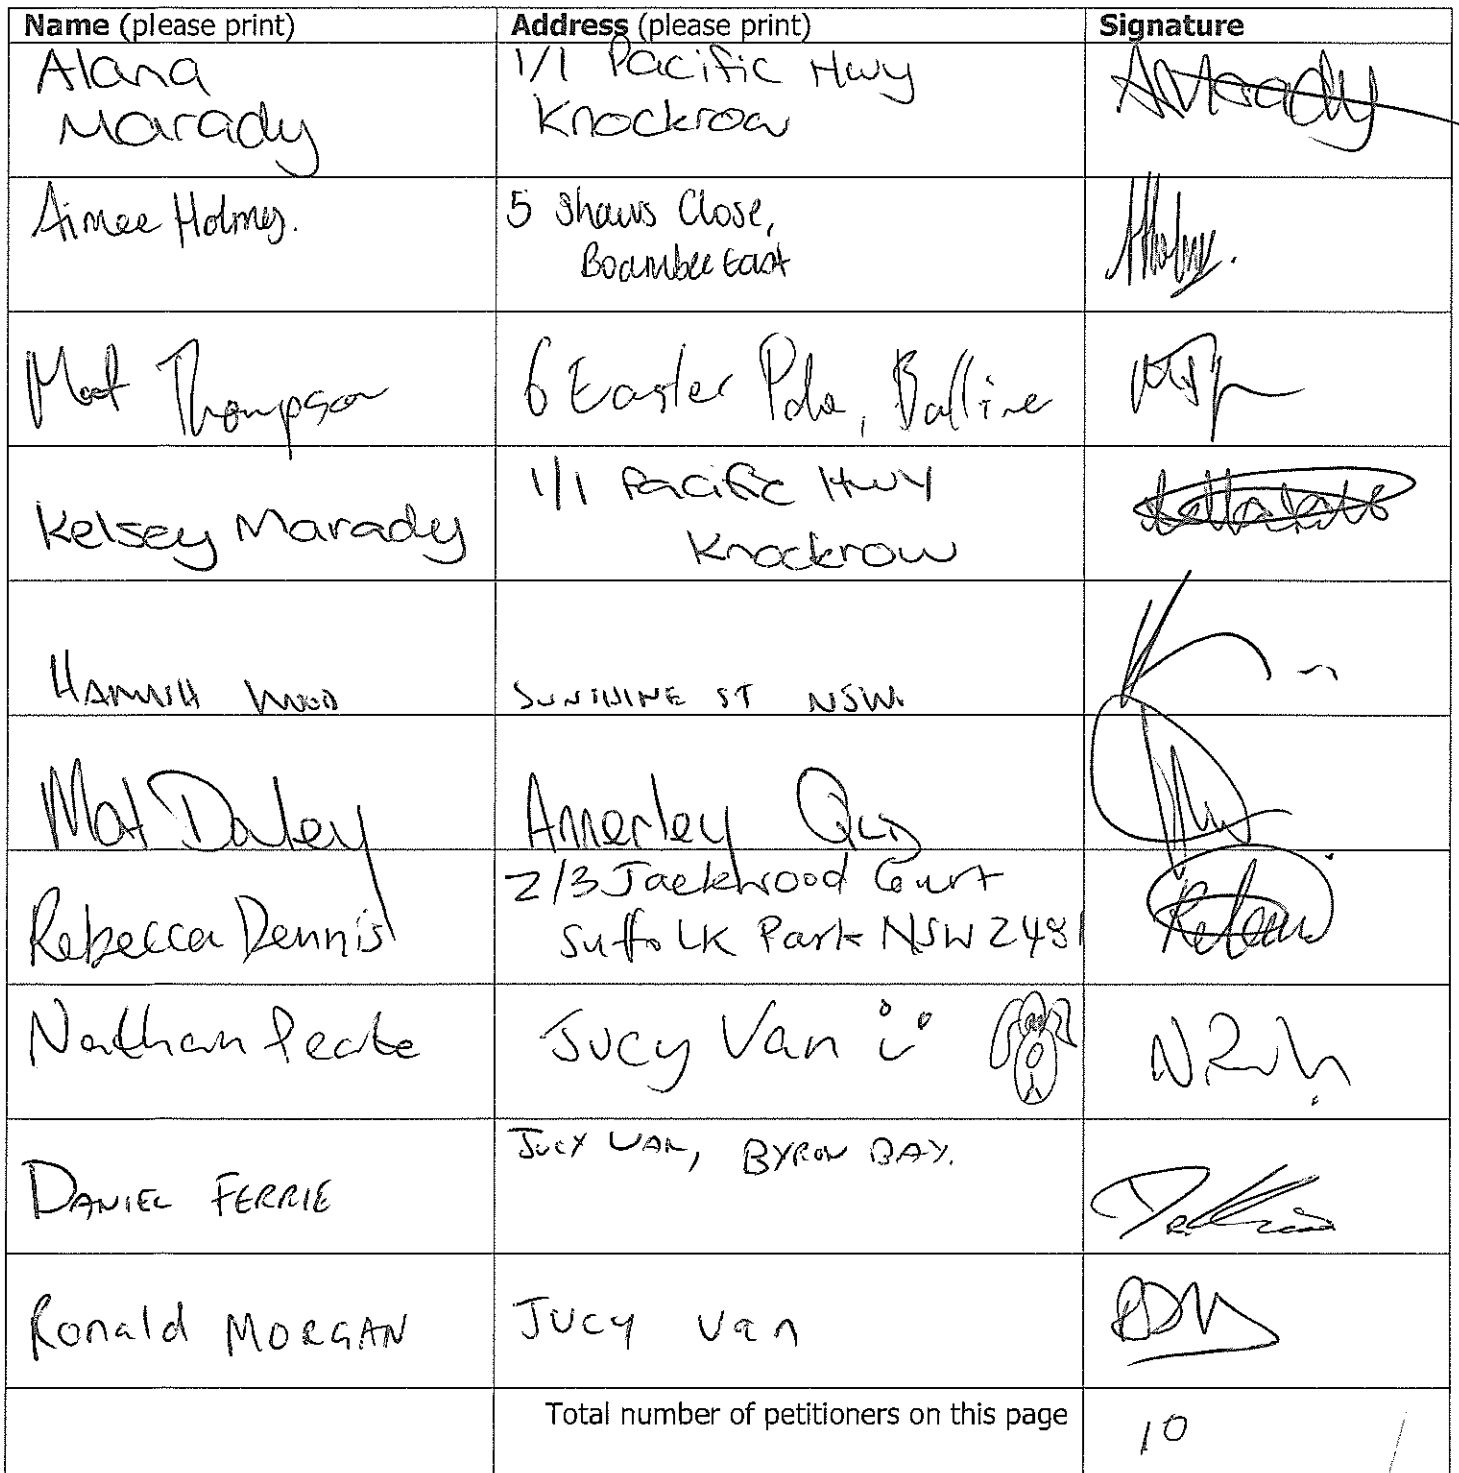 Name (please print) Address (please print) Signature
Alana 1/1 Pacific Hwy
Marady Knockrow AMarady
Aimee Holmes. 5 Shaws Close,
Boambee East
Mat Thompson 6 Easter Pde, Balline
Kelsey Marady 1/1 Pacific Hwy
Knockrow
HAMISH SUNSHINE ST NSW.
Mat Daley Annerley QLD
Rebecca Dennis 2/3 Jackwood Court
Suffolk Park NSW 2481
Nathan Peate Jucy Van
DANIEL FERRIE JUCY VAN, BYRON BAY.
Ronald MORGAN Jucy Van
Total number of petitioners on this page 10